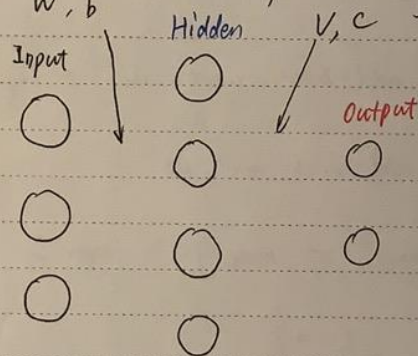 W, b
Hidden
V, C
Input
Output